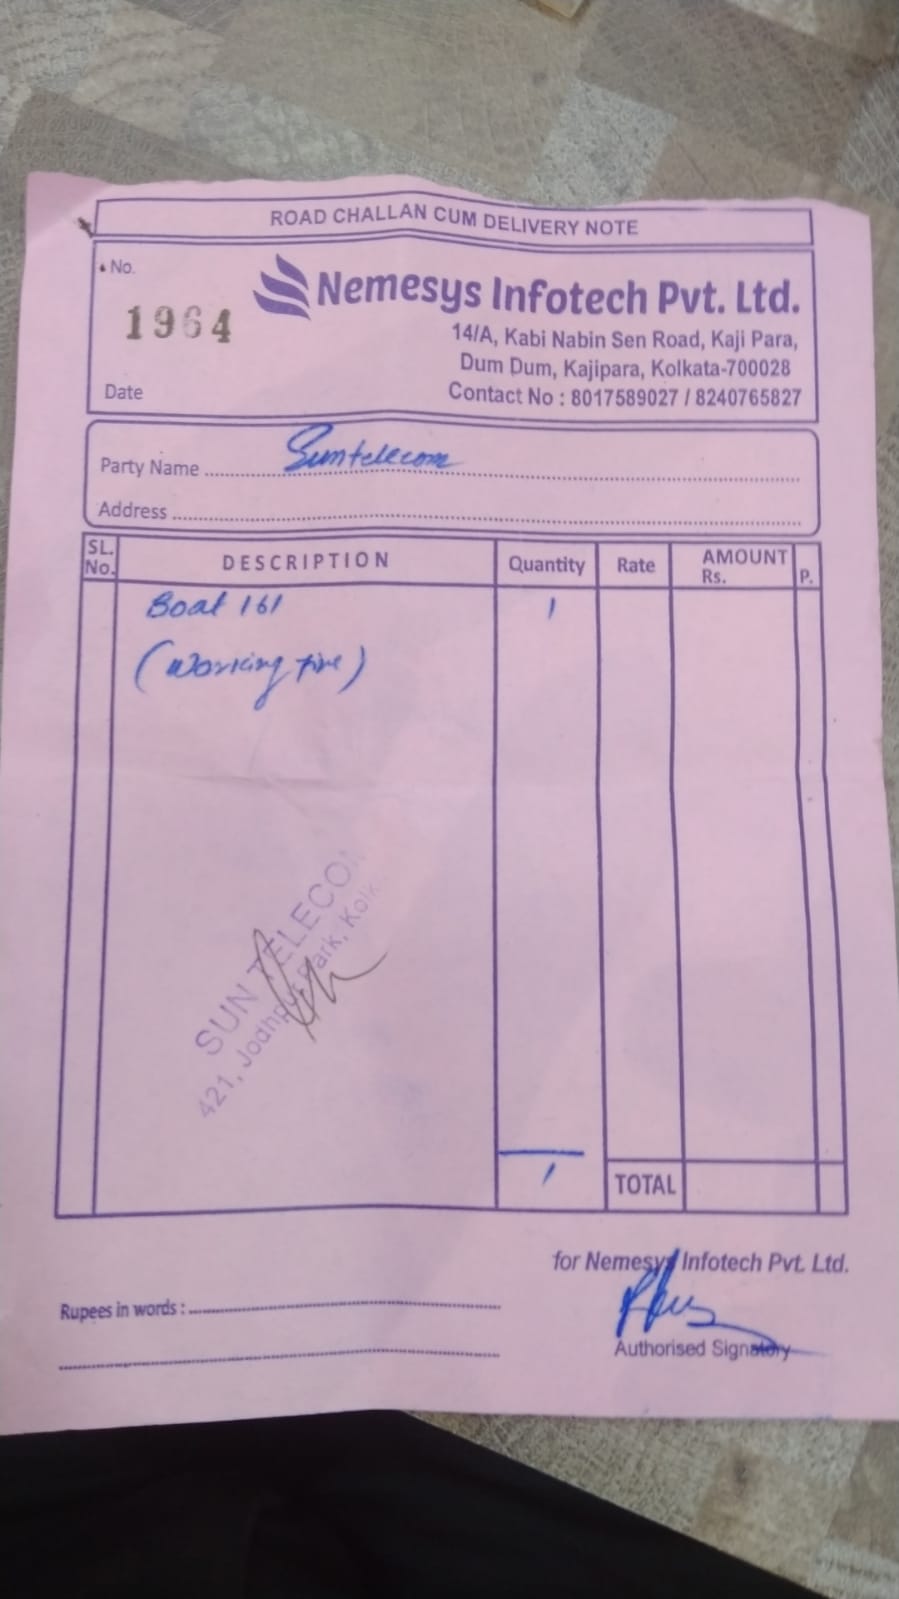 ROAD CHALLAN CUM DELIVERY NOTE
No.
1964
Nemesys Infotech Pvt. Ltd.
14/A, Kabi Nabin Sen Road, Kaji Para,
Dum Dum, Kajipara, Kolkata-700028
Contact No : 8017589027 / 8240765827
Date
Party Name Suntelecom
Address
SL. No. DESCRIPTION Quantity Rate AMOUNT Rs. P.
Boat 161 1
(Working fine)
SUN TELECO
421, Jodhpur Park, Kolk
1 TOTAL
for Nemesys Infotech Pvt. Ltd.
Rupees in words :
Authorised Signatory